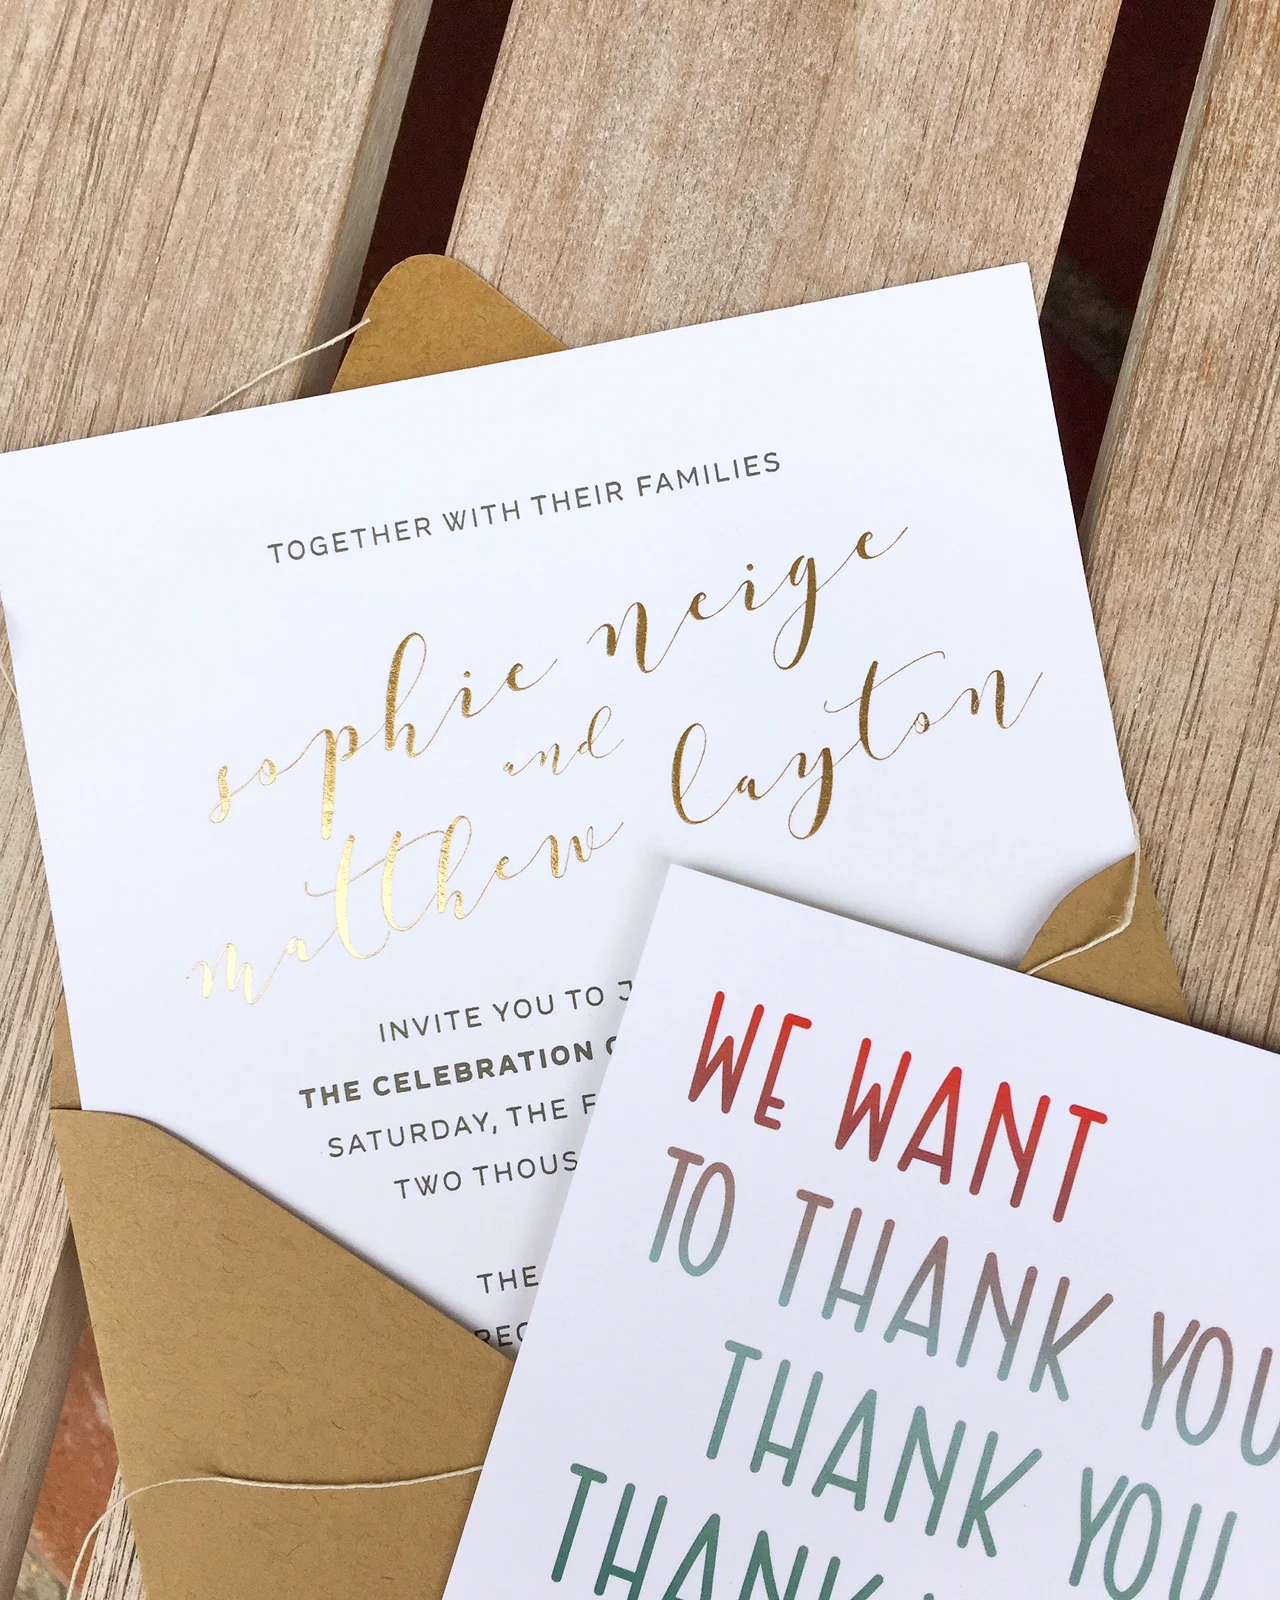 TOGETHER WITH THEIR FAMILIES
sophie neige
and
matthew layton
INVITE YOU TO
THE CELEBRATION
SATURDAY, THE
TWO
THE
WE WANT
TO THANK YOU
THANK YOU
THANK